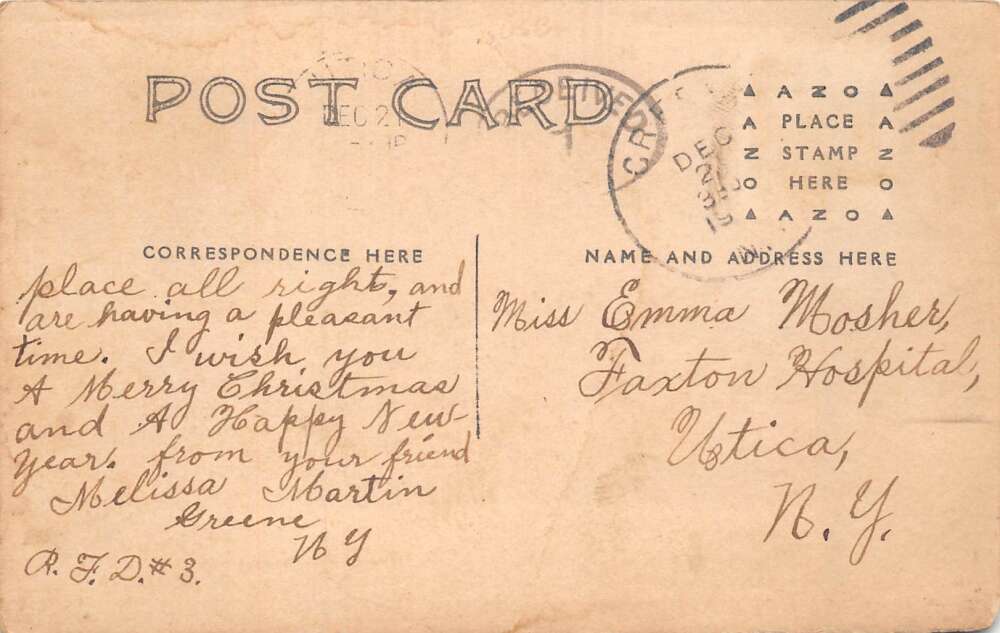 POST CARD
DEC 21
RECEIVED
DEC
AZO
A PLACE A
N STAMP N
O HERE O
AZO
CORRESPONDENCE HERE
place all right, and
are having a pleasant
time. I wish you
A Merry Christmas
and A Happy New
Year. from your friend
Melissa Martin
Greene
N Y
R. F. D. # 3.
NAME AND ADDRESS HERE
Miss Emma Mosher,
Faxton Hospital,
Utica,
N. Y.